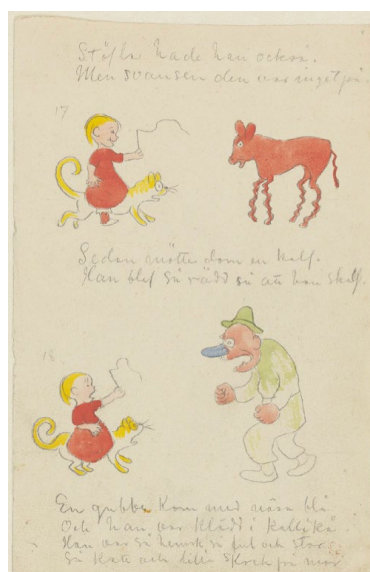 Stöflar hade han också.
Men svansen den var inget på.
17
Sedan mötte dom en kalf.
Han blef så rädd så att han skalf.
18
En gubbe kom med näsa blå
Och han var klädd i
Han var så hemsk så ful och stor
Så Kate och